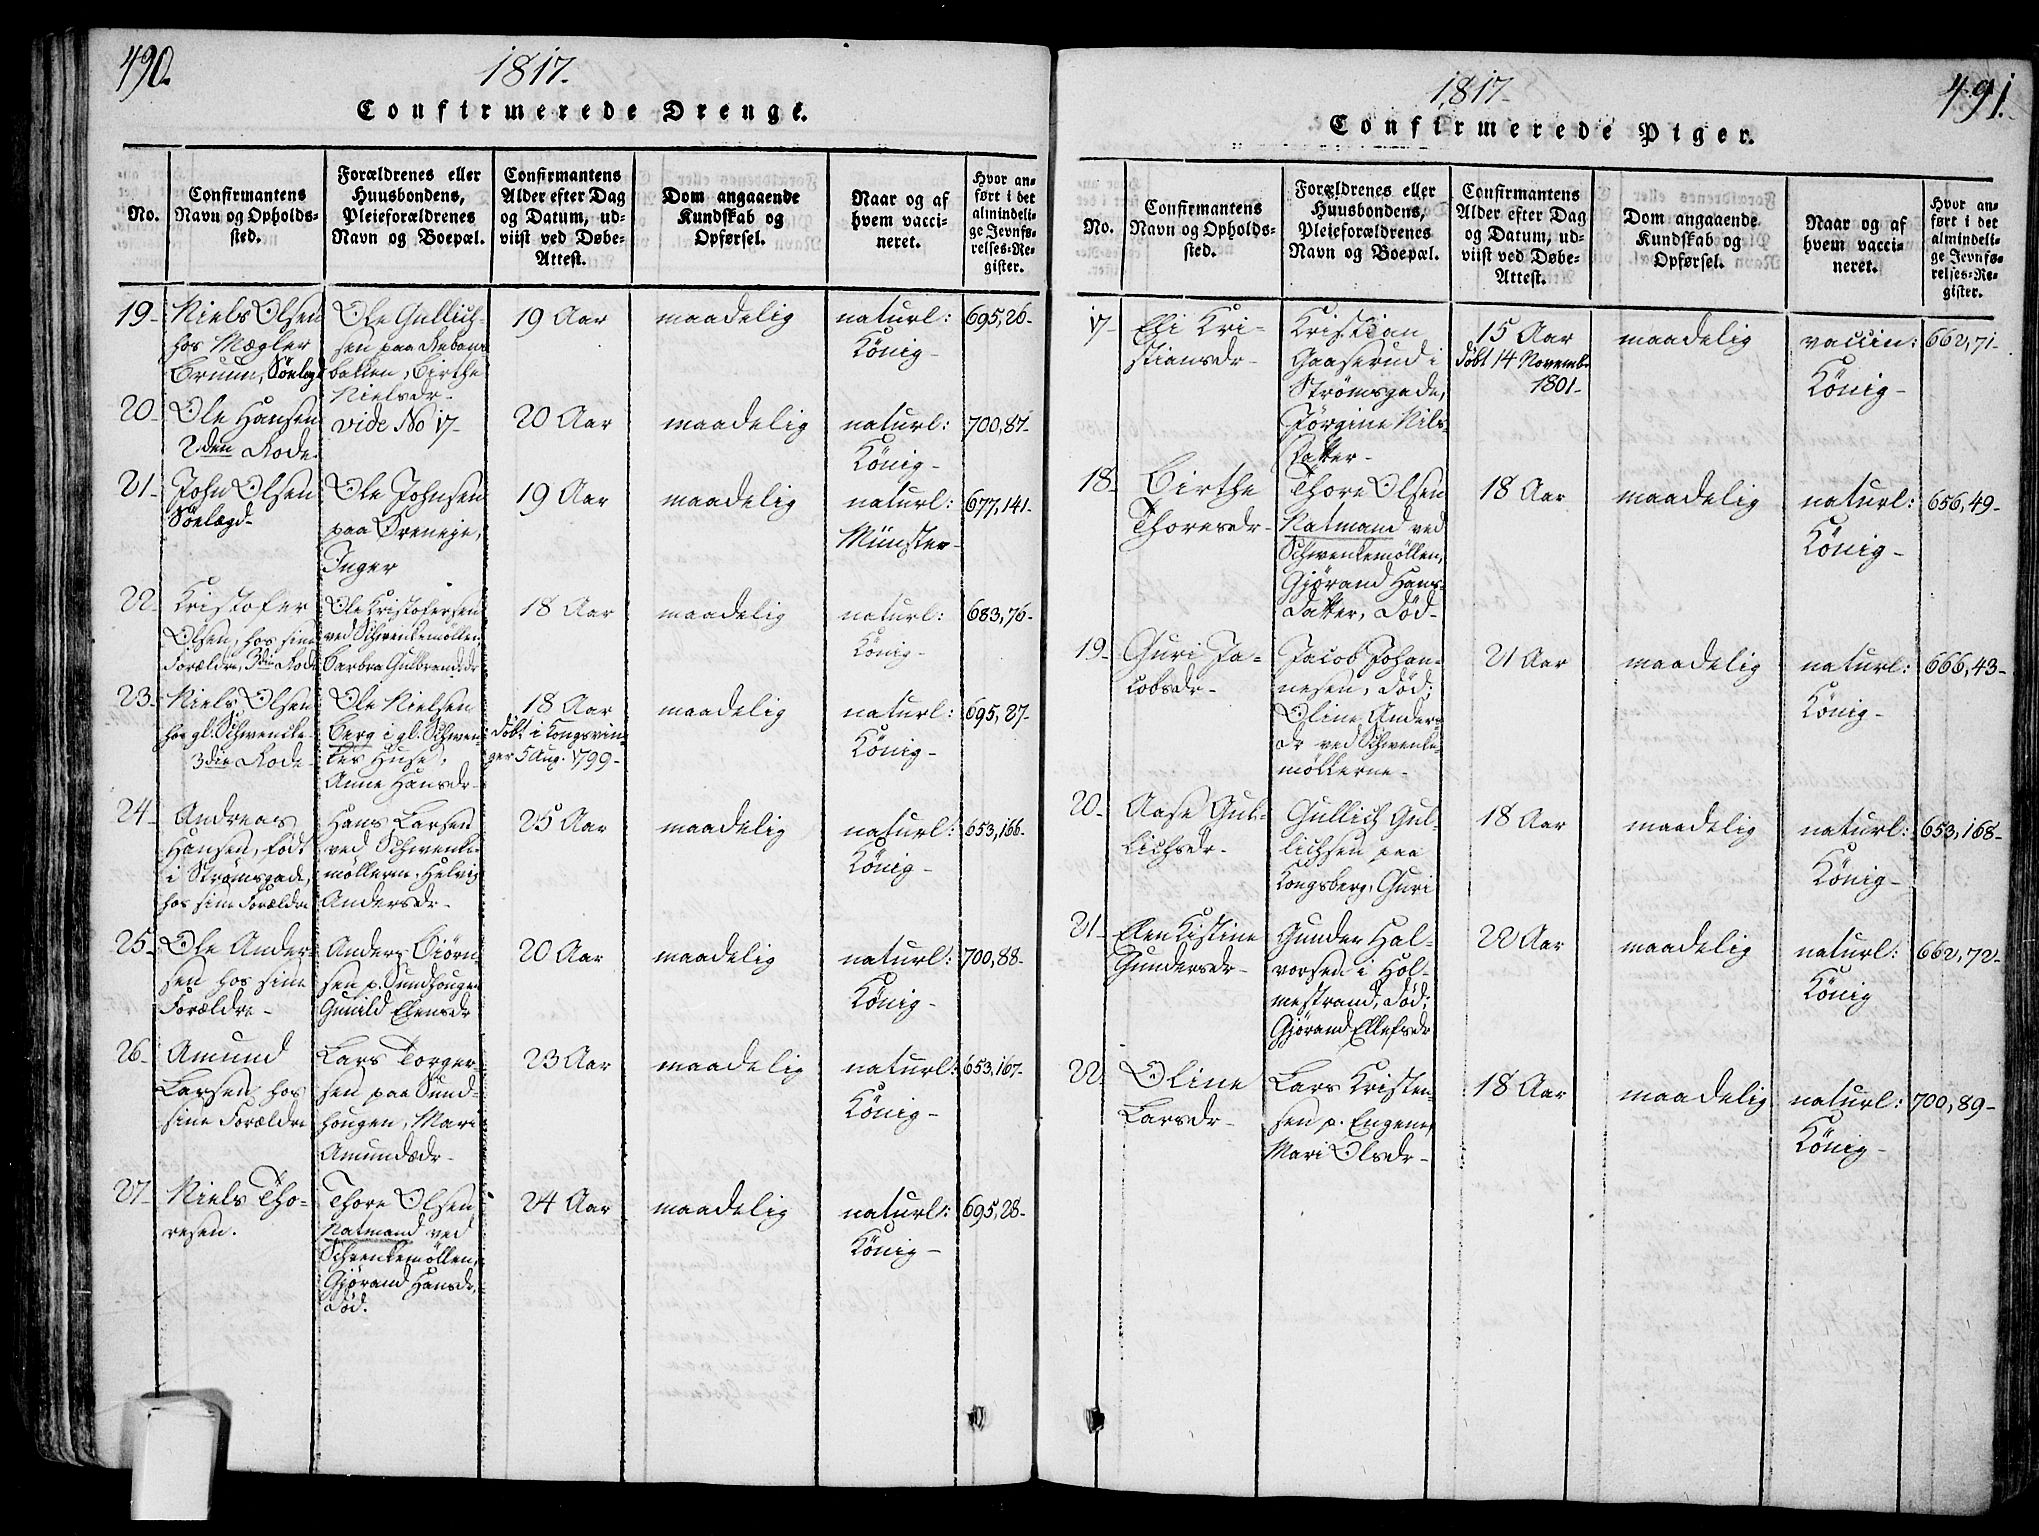 490.
1817.
Confirmerede Drenge.
No.
Confirmantens
Navn og Opholds-
sted.
Forældrenes eller
Huusbondens,
Pleieforældrenes
Navn og Boepæl.
Confirmantens
Alder efter Dag
og Datum, ud-
viist ved Døbe-
Attest.
Dom angaaende
Kundskab og
Opførsel.
Naar og af
hvem vacci-
neret.
Hvor an-
ført i det
almindeli-
ge Jevnfø-
relses-Re-
gister.
19-
Niels Olsen
hos Mægler
Bruun, Søelægd
Ole Gullich-
sen paa
bakken, Birthe
Nielsdr-
19 Aar
maadelig
naturl:
König-
695,26-
20-
Ole Hansen
2den Rode.
vide No 17-
20 Aar
maadelig
naturl:
König-
700,87-
21-
John Olsen
Söelægd-
Ole Johnsen
paa Øreneje,
Inger
19 Aar
maadelig
naturl:
Münster-
677,141-
22-
Kristofer
Olsen, hos sine
Forældre, 3die Rode
Ole Kristofersen
ved Schwenkemöllen,
Barbra Gulbrandsdr
18 Aar
maadelig
naturl:
König-
683,76-
23-
Niels Olsen
hos gl. Schwencke
3die Rode-
Ole Nielsen
Berg i gl. Schwen-
kes Huse,
Anne Hansdr-
18 Aar
döbt i Kongsvin-
ger 5 Aug. 1799-
maadelig
naturl:
König-
695,27-
24-
Andreas
Hansen, födt
i Strømsgade,
hos sine Forældre
Hans Larsen
ved Schwenke-
möllerne, Helvig
Andersdr-
25 Aar
maadelig
naturl:
König-
653,166-
25-
Ole Ander-
sen hos sine
Forældre-
Anders Biörn-
sen p. Sundhougen
Gunild Elensdr
20 Aar
maadelig
naturl:
König-
700,88-
26-
Amund
Larsen, hos
sine Forældre
Lars Torger-
sen paa Sund-
hougen, Mari
Amundsdr-
23 Aar
maadelig
naturl:
König-
653,167-
27-
Niels Tho-
resen.
Thore Olsen
Natmand ved
Schwenkemöllen,
Gjørand Hansdr,
död.
24 Aar
maadelig
naturl:
König-
695,28-
491.
1817-
Confirmerede Piger.
No.
Confirmantens
Navn og Opholds-
sted.
Forældrenes eller
Huusbondens,
Pleieforældrenes
Navn og Boepæl.
Confirmantens
Alder efter Dag
og Datum, ud-
viist ved Døbe-
Attest.
Dom angaaende
Kundskab og
Opførsel.
Naar og af
hvem vacci-
neret.
Hvor an-
ført i det
almindeli-
ge Jevnfø-
relses-Re-
gister.
17-
Eli Kri-
stiansdr-
Kristian
Gaaserud i
Strömsgade,
Jörgine Nils-
datter-
15 Aar
döbt 14 Novemb.
1801-
maadelig
vaccin:
König-
662,71-
18-
Birthe
Thoresdr-
Thore Olsen
Natmand ved
Schwenkemöllen,
Gjörand Hans-
datter, död-
18 Aar
maadelig
naturl:
König-
656,49-
19-
Guri Ja-
cobsdr-
Jacob Johan-
nesen, död;
Oline Anders
dr ved Schwenke-
möllerne-
21 Aar
maadelig
naturl:
König-
666,43-
20-
Aase Gul-
lichsdr-
Gullich Gul-
lichsen paa
Kongsberg, Guri
18 Aar
maadelig
naturl:
König-
653,168-
21-
Elen Kistine
Gundersdr-
Gunder Hal-
vorsen i Hol-
mestrand, död;
Gjörand Ellefsdr
22 Aar
maadelig
naturl:
König
662,72-
22-
Oline
Larsdr-
Lars Kristen-
sen p. Engene,
Mari Olsdr-
18 Aar
maadelig
naturl:
König-
700,89-